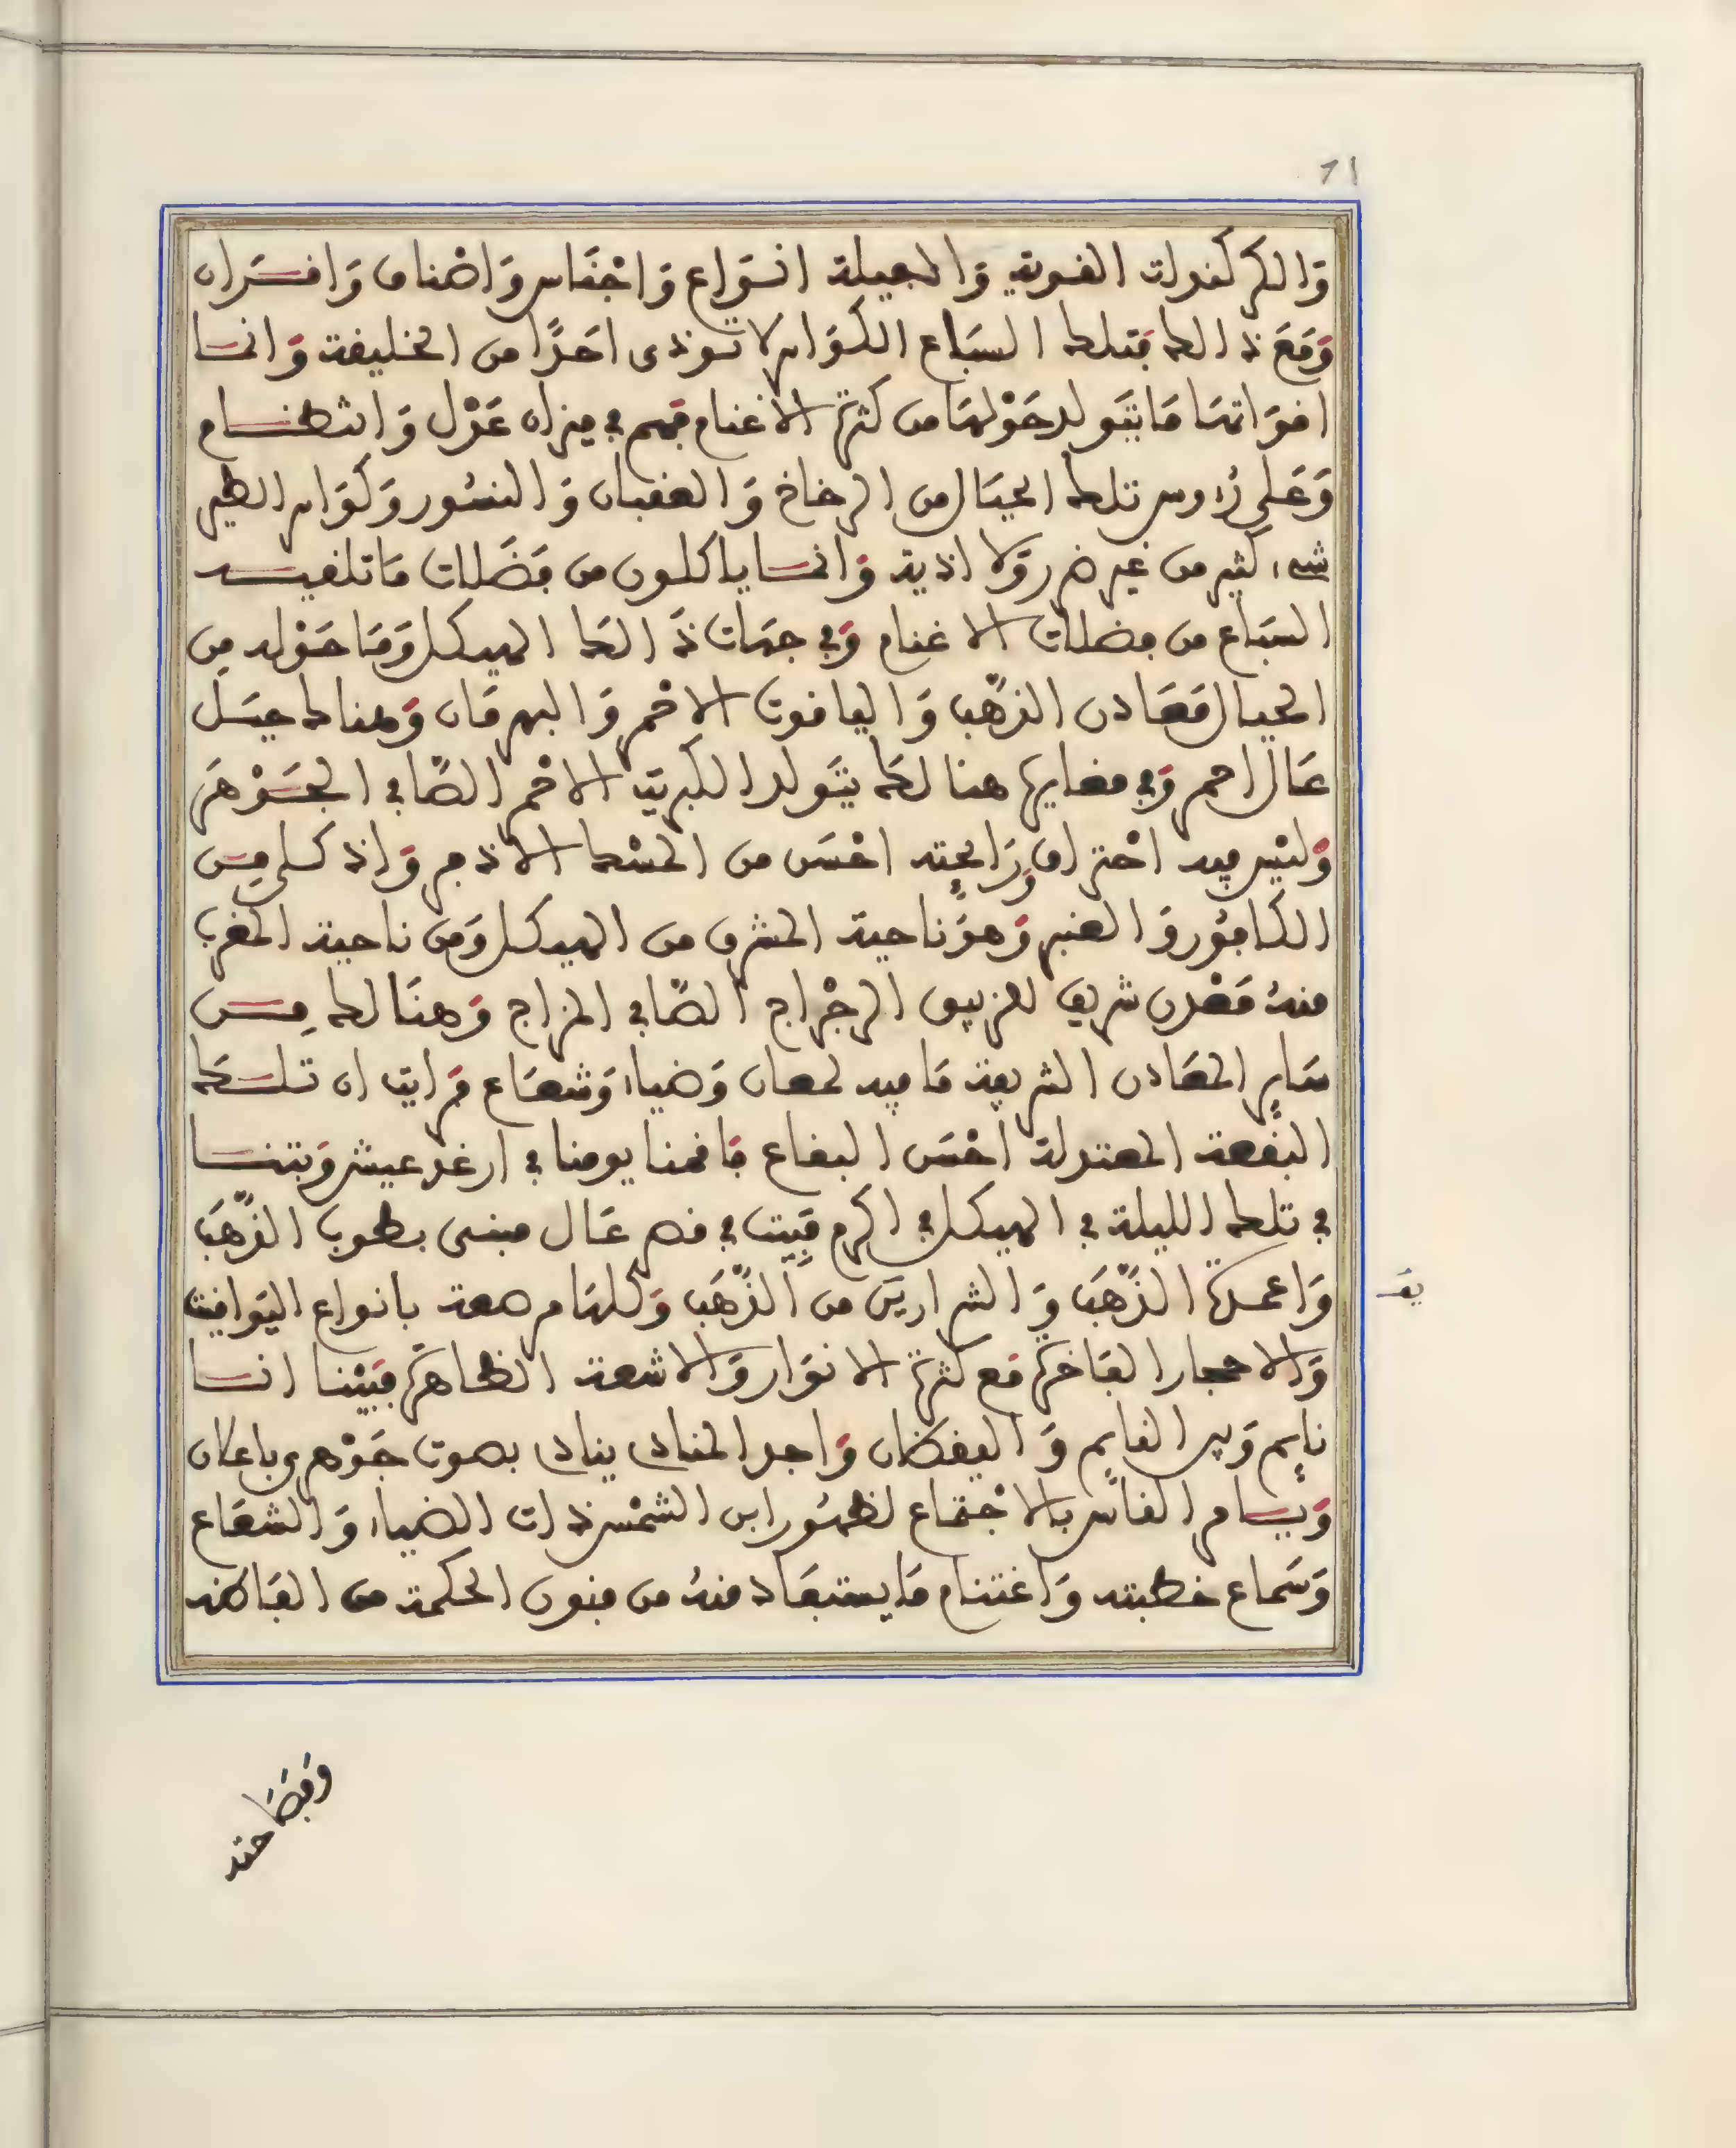 71
وَالكركندات القوية وَالجميلة انوَاع وَاجْنَاس وَاصْناف وَاقرَان
وَمَعَ ذالك فتلك السبَاع الكوَاسر لا توذى احَدًا من الخليقة وَانما
اقوَاتهَا مَا يتَولد حَوْلهَا من كثرة الاغنام فهم في ميزان عَدْل وَانتظام
وَعَلى رُءوس تلك الجبَال من الرخاخ وَالعقبان وَالنسُور وَكوَاسر الطير
شيء كثير من غير ضرر وَلا اذية وَانما ياكلون من فضَلات مَا تلقيه
السبَاع من فضلات الاغنام وَفي جهَات ذَالك الهيكل وَمَا حَوْله مِن
الجبال مَعَادن الذّهَب وَاليَاقوت الاحْمر وَالبهرمَان وَهناك جبَل
عَال احمر وَفي مغايرها هنالك يتَولد الكبريت الاحْمر الصّافي الجَوْهَر
وَليْس فيه احْتراق وَرَايحته احْسَن من المسْك الاذفر وَاذكى مِن
الكافُور وَالعنبر وَهوَ ناحية المشرق من الهيكل وَمِن ناحية المغرب
منهُ مَعْدن شريف للزيبق الرجْرَاج الصّافي المزاج وَهنَالك مِن
سَاير المعَادن الشريفة مَا فيه لمعان وَضياء وَشعَاع فرايت ان تلك
البُقعة المعتدلة احْسَن البقاع فَاقمنا يومنا في ارغد عيش وَبتنا
في تلك الليلة في الهيكل في اكرم مَبِيت في قصر عَال مبنى بطوب الذّهَب
وَاعمدة الذّهَب وَالشراريف من الذّهَب وَكلهَا مرصعة بانواع اليَوَاقيت
وَالاحجار الفَاخرة مَع كثرة الانوَار وَالاشعة الظاهرة فبَيْنا انا
نايم وَبين النايم وَاليقظان وَاجد المنادى ينادى بصوت جَوْهرى باعلان
وَيامر الناس بالاجْتماع لظهُور ابن الشمْس ذات الضياء وَالشعَاع
وَسَماع خطبته وَاغتنام مَا يستفَاد منهُ من فنون الحكمة من الفَاظه
يقـ
وَفصَاحته